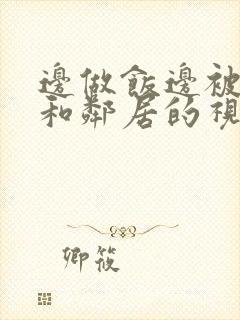 邊做飯邊被
和鄰居的視
卿筱